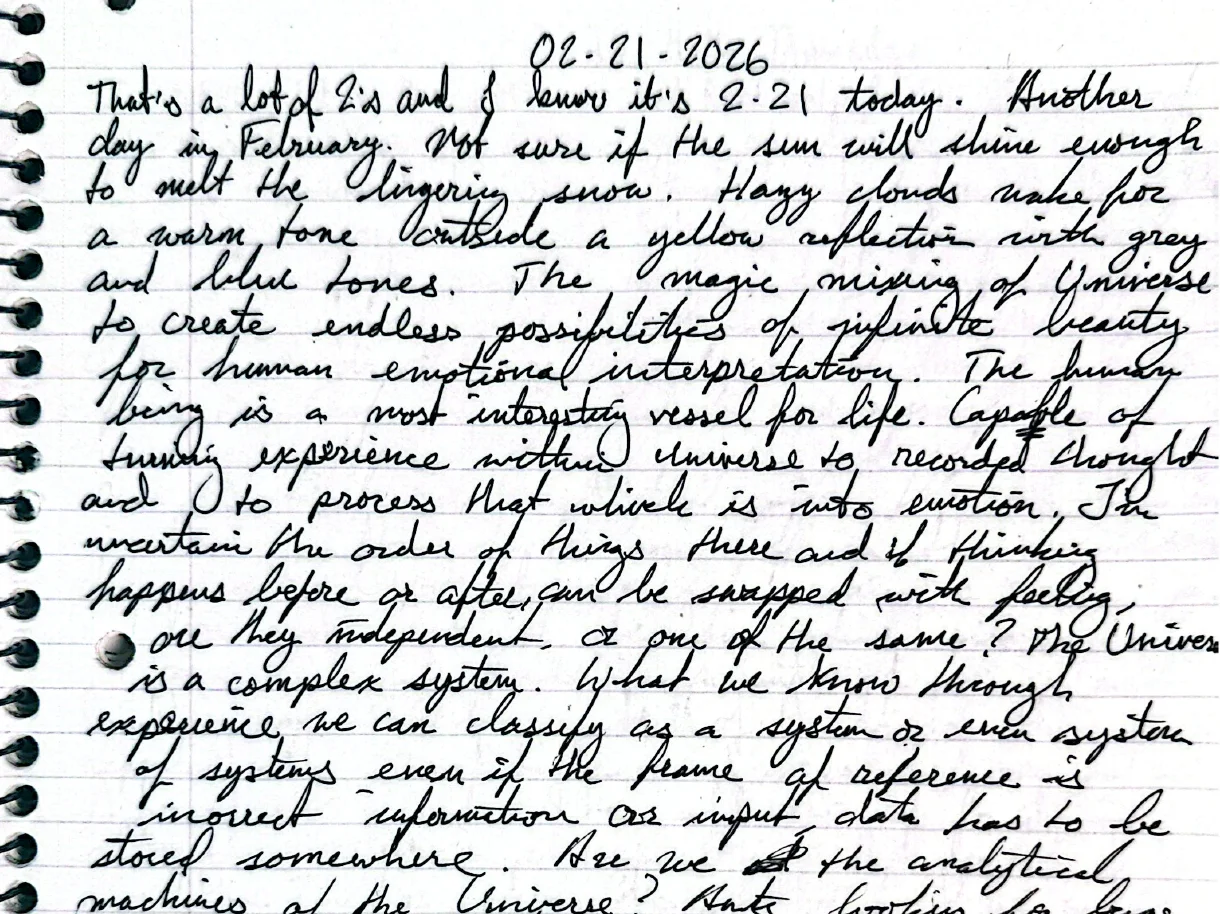 02-21-2026
That's a lot of 2's and I know it's 2.21 today. Another
day in February. Not sure if the sun will shine enough
to melt the lingering snow. Hazy clouds make for
a warm tone outside a yellow reflection with grey
and blue tones. The magic mixing of Universe
to create endless possibilities of infinite beauty
for human emotional interpretation. The human
being is a most interesting vessel for life. Capable of
turning experience within Universe to recorded thought
and to process that which is into emotion. I'm
uncertain the order of things there and if thinking
happens before or after, can be swapped with feeling,
are they independent, or one of the same? The Universe
is a complex system. What we know through
experience we can classify as a system or even system
of systems even if the frame of reference is
incorrect information or input, data has to be
stored somewhere. Are we the analytical
machines of the Universe? looking for